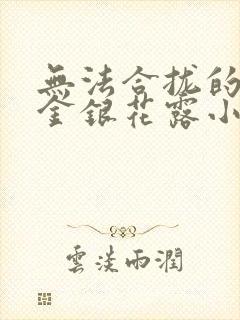 無法合拢的
金銀花露小
雲淡雨潤